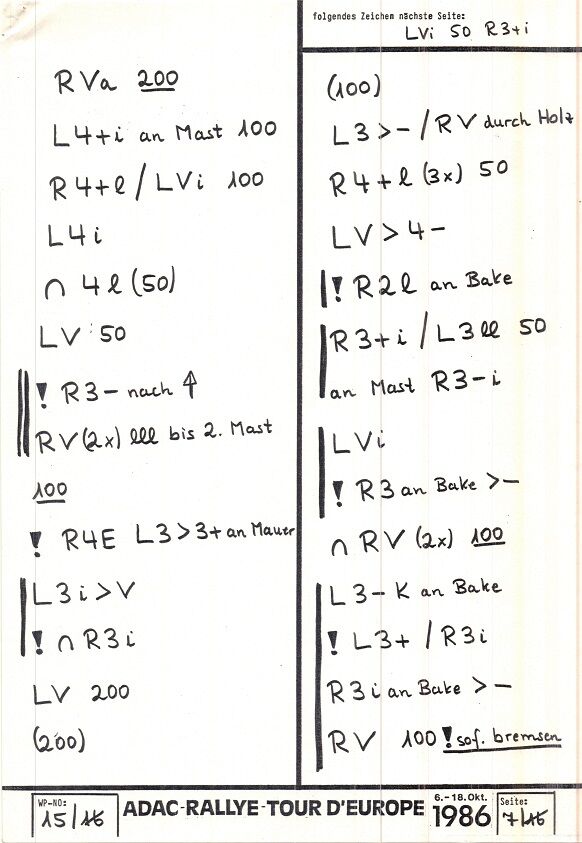 folgendes Zeichem nächste Seite:
LVi 50 R3+i
RVa 200
L4+i an Mast 100
R4+l / LVi 100
L4i
∩ 4l (50)
LV 50
! R3- nach ↑
RV(2x) lll bis 2. Mast
100
! R4E L3>3+ an Mauer
L3i>V
! ∩ R3i
LV 200
(200)
(100)
L3>- / RV durch Holz
R4+l (3x) 50
LV>4-
! R2l an Bake
R3+i / L3ll 50
an Mast R3-i
LVi
! R3 an Bake >-
∩ RV (2x) 100
L3- K an Bake
! L3+ / R3i
R3i an Bake >-
RV 100 ! sof. bremsen
WP-NO:
15/16
ADAC-RALLYE-TOUR D'EUROPE
6.-18.Okt.
1986
Seite:
7/16